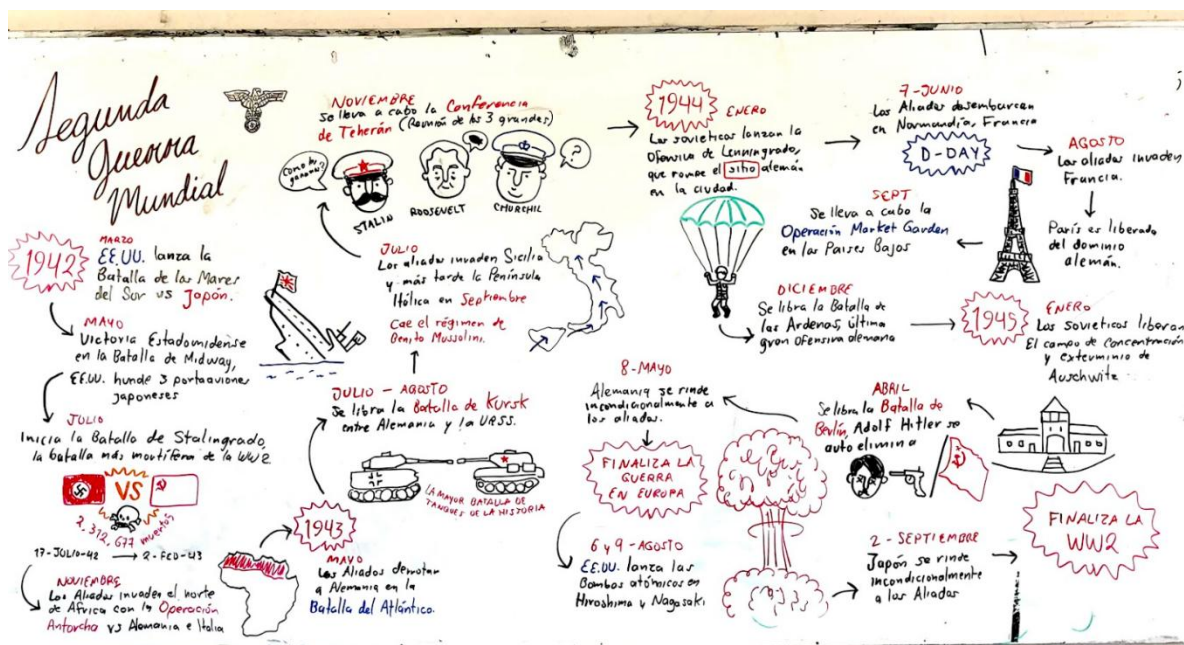 Segunda
Guerra
Mundial
1942
MARZO
EE.UU. lanza la
Batalla de los Mares
del Sur vs Japón.
MAYO
Victoria Estadounidense
en la Batalla de Midway,
EE.UU. hunde 3 portaaviones
japoneses
JULIO
Inicia la Batalla de Stalingrado,
la batalla más mortífera de la WW2
VS
2,312,677 muertos
17-JULIO-42 → 2-FEB-43
NOVIEMBRE
Los Aliados invaden el norte
de África con la Operación
Antorcha vs Alemania e Italia
1943
MAYO
Los Aliados derrotan
a Alemania en la
Batalla del Atlántico.
JULIO - AGOSTO
Se libra la Batalla de Kursk
entre Alemania y la URSS.
LA MAYOR BATALLA DE
TANQUES DE LA HISTORIA
JULIO
Los aliados invaden Sicilia
y más tarde la Península
Itálica en Septiembre
Cae el régimen de
Benito Mussolini.
NOVIEMBRE
Se lleva a cabo la Conferencia
de Teherán (Reunión de los 3 grandes)
¿Como les
ganamos?
?
STALIN
ROOSEVELT
CHURCHIL
1944
ENERO
Los sovieticos lanzan la
Ofensiva de Lenningrado,
que rompe el sitio alemán
en la ciudad.
7-JUNIO
Los Aliados desembarcan
en Normandía, Francia
D-DAY
AGOSTO
Los aliados invaden
Francia.
París es liberada
del dominio
alemán.
SEPT
Se lleva a cabo la
Operación Market Garden
en los Paises Bajos
DICIEMBRE
Se libra la Batalla de
las Ardenas, última
gran ofensiva alemana
1945
ENERO
Los sovieticos liberan
El campo de concentración
y exterminio de
Auschwitz
ABRIL
Se libra la Batalla de
Berlín, Adolf Hitler se
auto elimina
8-MAYO
Alemania se rinde
incondicionalmente a
los aliados.
FINALIZA LA
GUERRA
EN EUROPA
6 y 9 - AGOSTO
EE.UU. lanza las
Bombas atómicas en
Hiroshima y Nagasaki
2 - SEPTIEMBRE
Japón se rinde
incondicionalmente
a los Aliados
FINALIZA LA
WW2